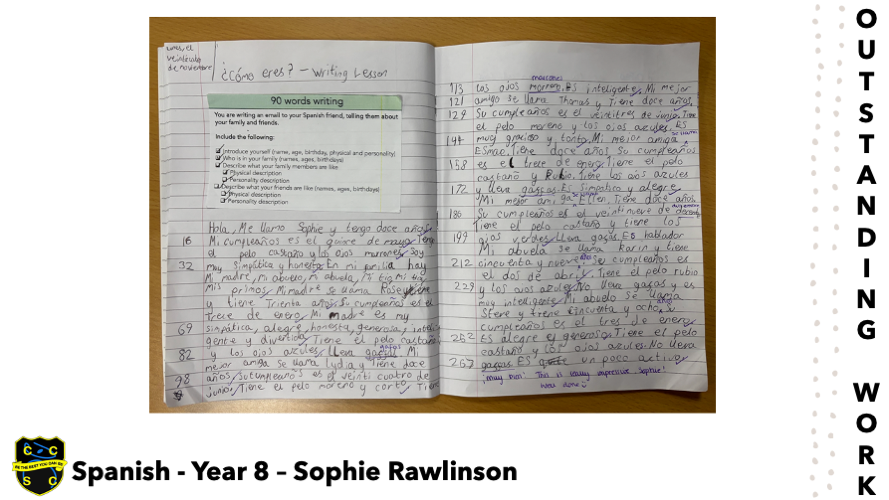 lunes, el
veintiocho
de noviembre
¿Cómo eres? - Writing Lesson
90 words writing
You are writing an email to your Spanish friend, telling them about
your family and friends.
Include the following:
Introduce yourself (name, age, birthday, physical and personality)
Who is in your family (names, ages, birthdays)
Describe what your family members are like
Physical description
Personality description
Describe what your friends are like (names, ages, birthdays)
Physical description
Personality description
Hola, Me llamo Sophie y tengo doce años,
16 Mi cumpleaños es el quince de mayo. Tengo
el pelo castaño y los ojos marrones. Soy
32 muy simpática y honesta. En mi familia hay
Mi madre, mi abuelo, mi abuela, mi tía mi tío
Mis primos. Mi madre se llama Rosey
y tiene Trienta años. Su cumpleaños es el
trece de enero. Mi madre es muy
69 simpática, alegre, honesta, generosa, inteli
gente y divertida. Tiene el pelo castaño
82 y los ojos azules. Lleva gafas Mi
mejor amiga se llama Lydia y tiene doce
98 años, Su cumpleaños es el veinti cuatro de
junio, Tiene el pelo moreno y corto. Tien
marrones
113 los ojos moreno. Es inteligente. Mi mejor
121 amigo se llama Thomas y Tiene doce años.
129 Su cumpleaños es el veintitres de junio. Tiene
el pelo moreno y los ojos azules. ES
144 muy gracioso y tonto. Mi mejor amiga
se llama
Esmae. Tiene doce años. Su cumpleaños
158 es el trece de enero. Tiene el pelo
castaño y Tiene los ojos azules
172 y lleva gasgas. Es Simpática y alegre.
Mi mejor amiga Ellen, Tiene doce años.
186 Su cumpleaños es el veintinueve de
Tiene el pelo castaño y tiene los
199 ojos verdes. lleva gagas. ES hablador
Mi abuela se llama Karin y tiene
212 cincuenta y nueve Su cumpleaños es
el dos de abril. Tiene el pelo rubio
229 y los ojos azules. No lleva gagas y es
muy inteligente. Mi abuelo se llama
Steve y tiene cincuenta y ocho, Su
cumpleaños es el tres de enero.
252 Es alegre Tiene el pelo
castaño y los ojos azules. No lleva
267 gagas. ES un poco activo
¡muy bien! This is really impressive Sophie!
Well done
C C
BE THE BEST YOU CAN BE
S C
Spanish - Year 8 – Sophie Rawlinson
OUTSTANDING WORK